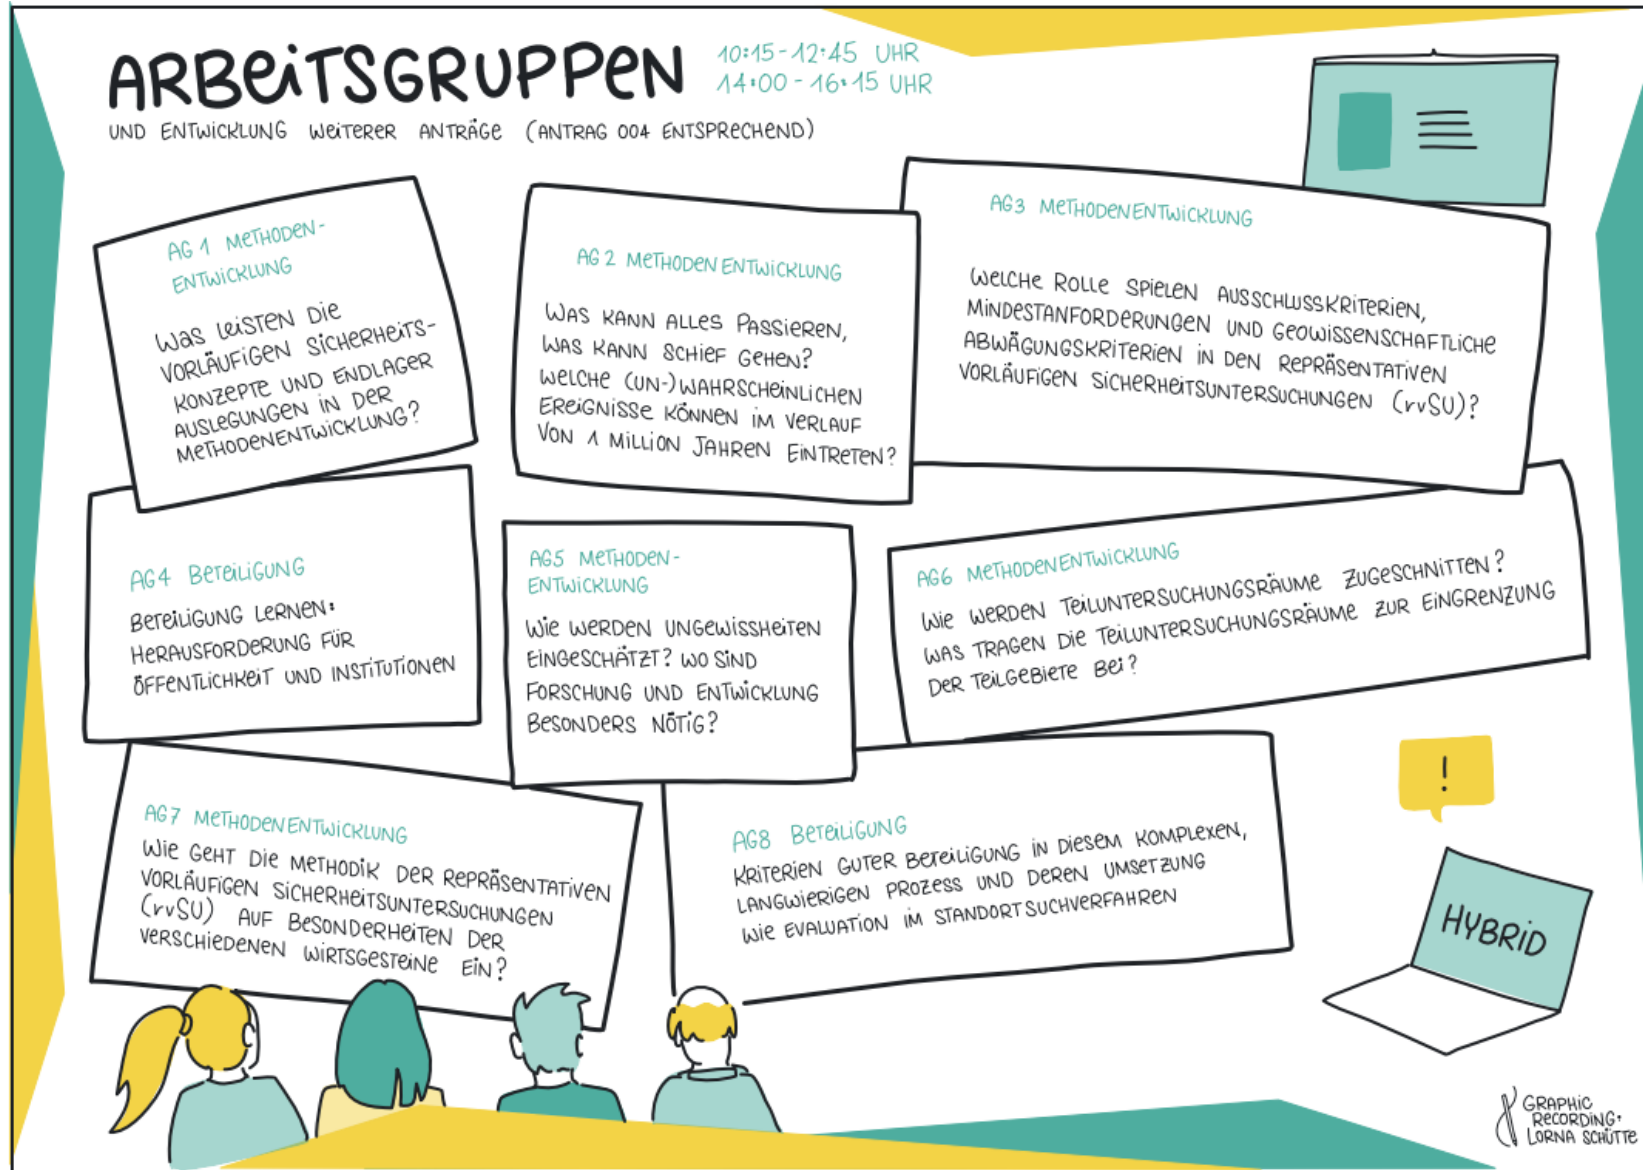 ARBEITSGRUPPEN
10:15-12:45 UHR
14:00-16:15 UHR
UND ENTWICKLUNG WEITERER ANTRÄGE (ANTRAG 004 ENTSPRECHEND)
AG 1 METHODEN-
ENTWICKLUNG
WAS LEISTEN DIE
VORLÄUFIGEN SICHERHEITS-
KONZEPTE UND ENDLAGER
AUSLEGUNGEN IN DER
METHODENENTWICKLUNG?
AG 2 METHODENENTWICKLUNG
WAS KANN ALLES PASSIEREN,
WAS KANN SCHIEF GEHEN?
WELCHE (UN-)WAHRSCHEINLICHEN
EREIGNISSE KÖNNEN IM VERLAUF
VON 1 MILLION JAHREN EINTRETEN?
AG3 METHODENENTWICKLUNG
WELCHE ROLLE SPIELEN AUSSCHLUSSKRITERIEN,
MINDESTANFORDERUNGEN UND GEOWISSENSCHAFTLICHE
ABWÄGUNGSKRITERIEN IN DEN REPRÄSENTATIVEN
VORLÄUFIGEN SICHERHEITSUNTERSUCHUNGEN (rvSU)?
AG4 BETEILIGUNG
BETEILIGUNG LERNEN:
HERAUSFORDERUNG FÜR
ÖFFENTLICHKEIT UND INSTITUTIONEN
AG5 METHODEN-
ENTWICKLUNG
WIE WERDEN UNGEWISSHEITEN
EINGESCHÄTZT? WO SIND
FORSCHUNG UND ENTWICKLUNG
BESONDERS NÖTIG?
AG6 METHODENENTWICKLUNG
WIE WERDEN TEILUNTERSUCHUNGSRÄUME ZUGESCHNITTEN?
WAS TRAGEN DIE TEILUNTERSUCHUNGSRÄUME ZUR EINGRENZUNG
DER TEILGEBIETE BEI?
AG7 METHODENENTWICKLUNG
WIE GEHT DIE METHODIK DER REPRÄSENTATIVEN
VORLÄUFIGEN SICHERHEITSUNTERSUCHUNGEN
(rvSU) AUF BESONDERHEITEN DER
VERSCHIEDENEN WIRTSGESTEINE EIN?
AG8 BETEILIGUNG
KRITERIEN GUTER BETEILIGUNG IN DIESEM KOMPLEXEN,
LANGWIERIGEN PROZESS UND DEREN UMSETZUNG
WIE EVALUATION IM STANDORTSUCHVERFAHREN
!
HYBRID
GRAPHIC
RECORDING:
LORNA SCHÜTTE